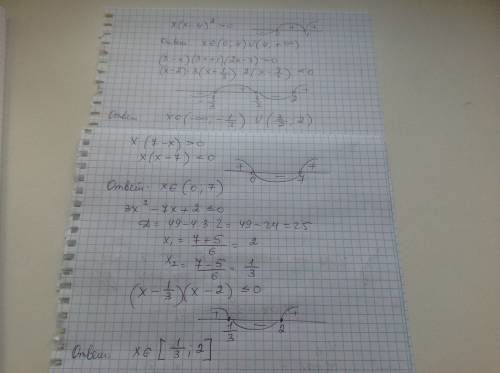 x(x-4)² > 0
Ответ: x∈(0,4)∪(4,+∞)
(x-2)·3(x+1/3)·2(x-3/2) < 0
+ +
-1/3 3/2 2
Ответ x∈(-∞, -1/3)∪(3/2, 2)
x(7-x)>0
x(x-7)<0
+ - +
0 7
Ответ: x∈(0,7)
3x²-7x+2≤0
D=49-4·3·2=49-24=25
x₁=(7+5)/6=2
x₂=(7-5)/6=1/3
(x-1/3)(x-2)≤0
+ - +
1/3 2
Ответ: x∈[1/3; 2]